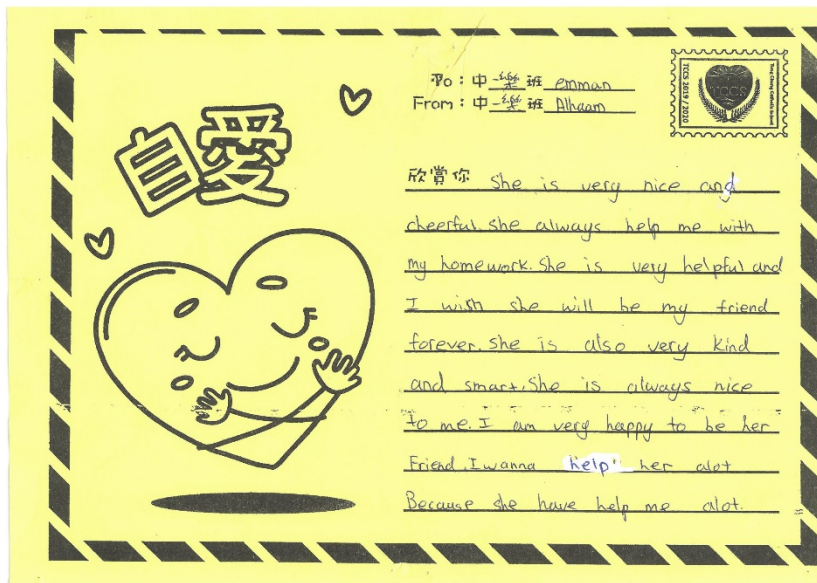 自愛
To：中一樂班 emman
From：中一樂班 Alhaam
TCCS 2019 / 2020
TCCS
欣賞你 She is very nice and
cheerful. She always help me with
my homework. She is very helpful and
I wish she will be my friend
forever. She is also very kind
and smart. She is always nice
to me. I am very happy to be her
Friend. I wanna help her alot
Because she have help me alot.